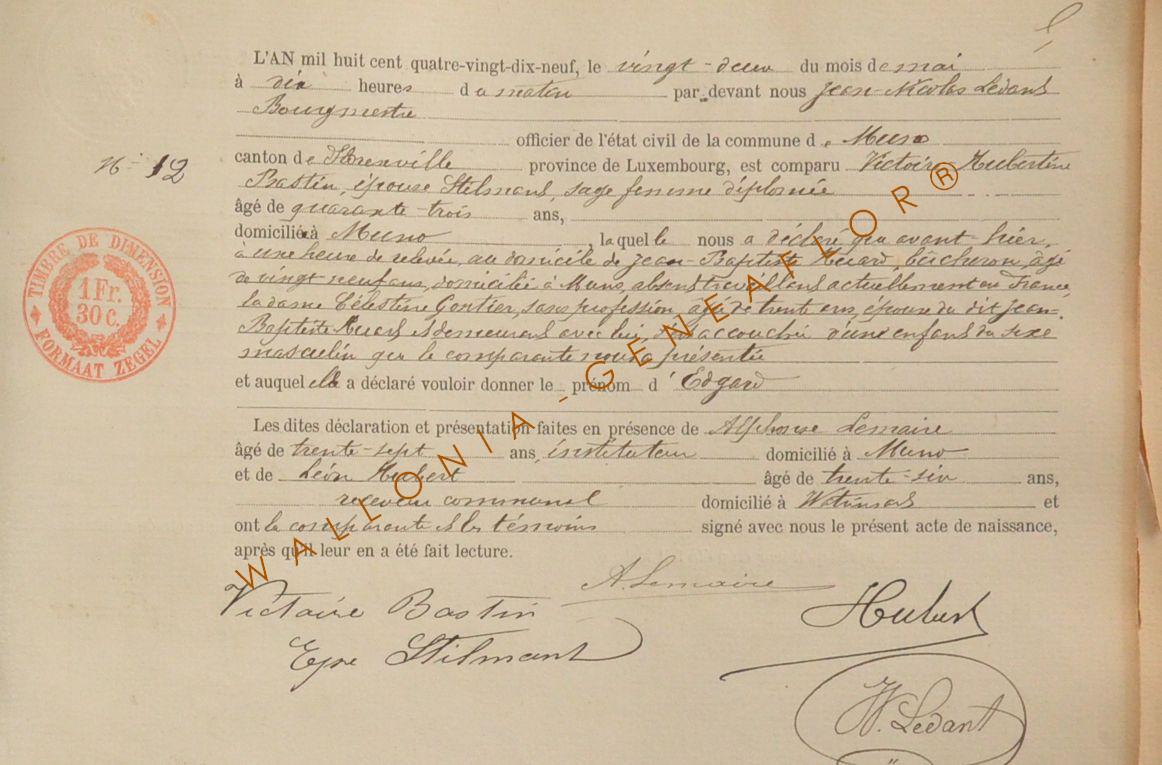 L'AN mil huit cent quatre-vingt-dix-neuf, le vingt-deux du mois de mai
à dix heures du matin par devant nous Jean-Nicolas Ledant
Bourgmestre
officier de l'état civil de la commune de Muno
N° 12
canton de Florenville province de Luxembourg, est comparu Victoire Hubertine
Bastin, épouse Stilmant, sage femme diplomée
âgé de quarante-trois ans,
domiciliée à Muno, laquelle nous a déclaré qu'avant-hier,
à une heure de relevée, au domicile de Jean-Baptiste Huard, bûcheron, âgé
de vingt neuf ans, domicilié à Muno, absent travaillant actuellement en France,
la dame Célestine Gontier, sans profession, âgée de trente ans, épouse du dit Jean-
Baptiste Huard et demeurant avec lui, est accouchée d'une enfant du sexe
masculin que la comparante nous a présenté
et auquel elle a déclaré vouloir donner le prénom d'Edgard
Les dites déclaration et présentation faites en présence de Alphonse Lemaire
âgé de trente-sept ans, instituteur domicilié à Muno
et de Léon Hubert âgé de trente-six ans,
receveur communal domicilié à et
ont la comparante et les témoins signé avec nous le présent acte de naissance,
après qu'il leur en a été fait lecture.
TIMBRE DE DIMENSION
1 Fr.
30 C.
FORMAAT ZEGEL
A. Lemaire
Victoire Bastin
Hubert
Epse Stilmant
N. Ledant
WALLONIA-GENEAFLOR®